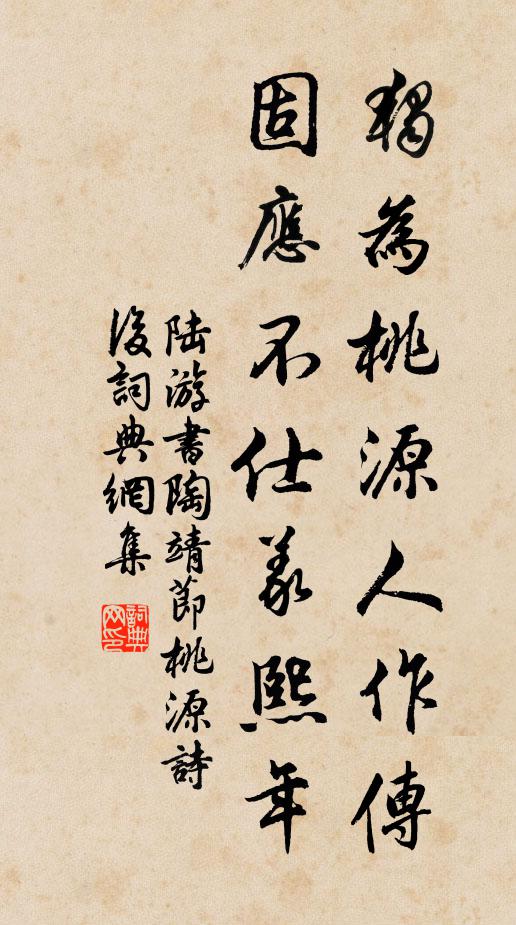 獨為桃源人作傳
固應不仕義熙年
陆游書陶靖節桃源詩
後詞典網集
詞典
网印